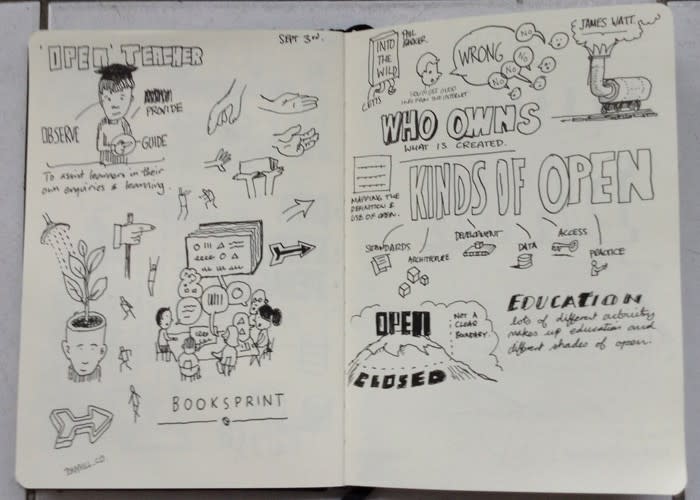 'OPEN' TEACHER
SEPT 3RD.
PROVIDE
OBSERVE
GUIDE
To assist learners in their
own enquiries & learning.
BOOKSPRINT
INTO
THE
WILD
PHIL
BARKER
CETIS
WRONG
NO
NO
NO
NO
NO
JAMES WATT.
WHO OWNS
WHAT IS CREATED.
KINDS OF OPEN
MAPPING THE
DEFINITION &
USE OF OPEN.
STANDARDS
ARCHITECTURE
DEVELOPMENT
DATA
ACCESS
PRACTICE
OPEN
NOT A
CLEAR
BOUNDARY.
CLOSED
EDUCATION
lots of different activity
makes up education and
different shades of open.